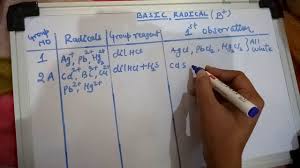 BASIC RADICAL (B⁺)
Group NO | Radicals | Group reagent | 1st Observation
1 | Ag⁺, Pb²⁺, Hg₂²⁺ | dil HCl | AgCl, PbCl₂, Hg₂Cl₂ } All white
2A | Cd²⁺, Bi³⁺, Cu²⁺ | dil HCl + H₂S | CdS
Pb²⁺, Hg²⁺